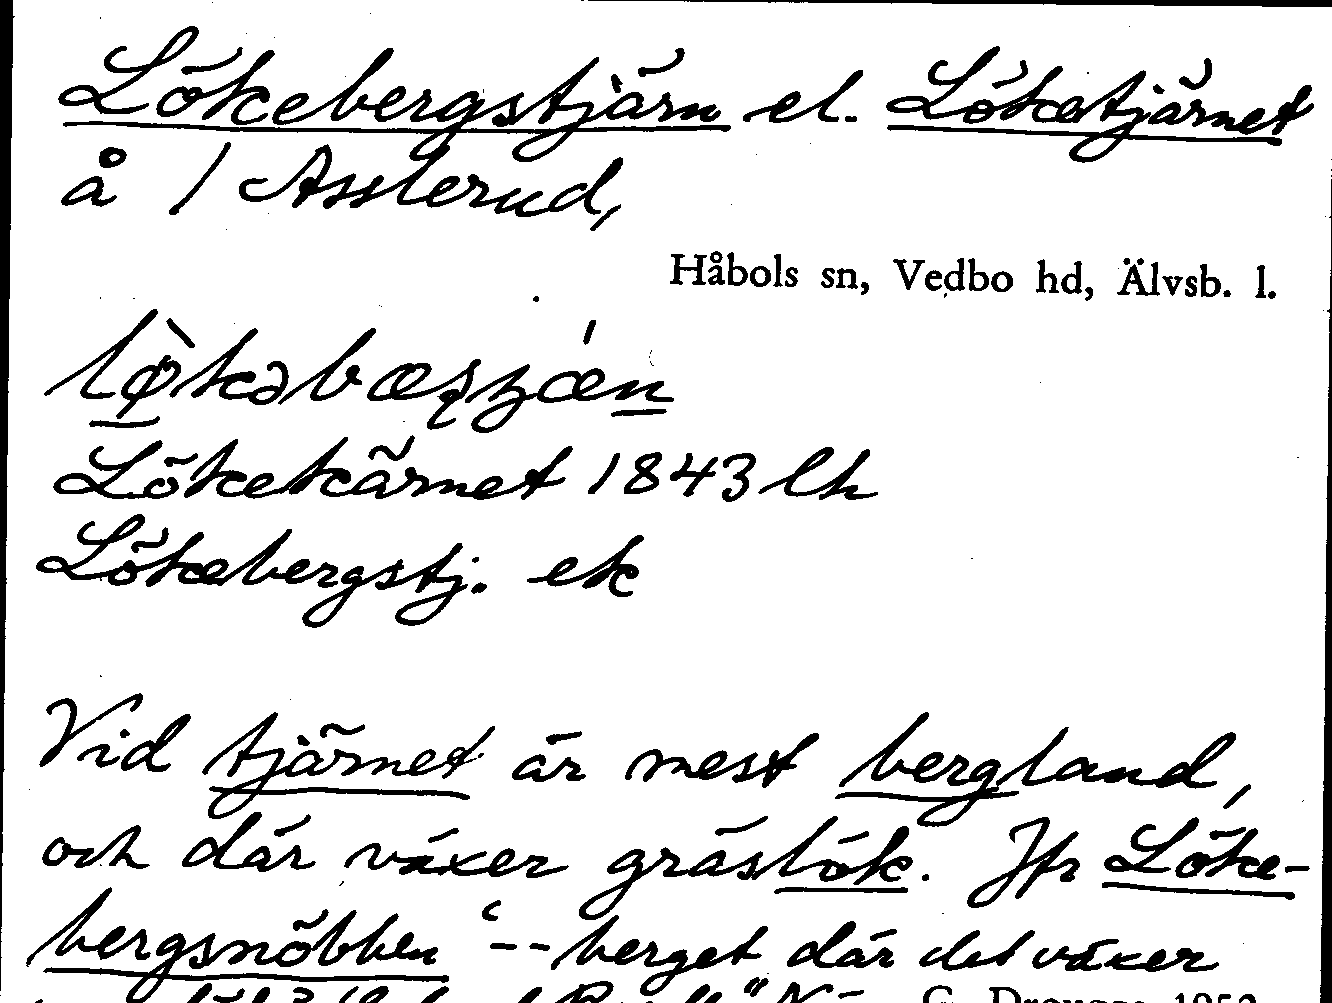 Lökebergstjärn el. Löketjärnet
å / Asslerud,
Håbols sn, Vedbo hd, Älvsb. l.
Lökekärnet 1843 lh
Lökebergstj. ek
Vid tjärnet är mest bergland,
och där växer gräslök. Jfr Löke-
bergsnöbben --berget där det växer